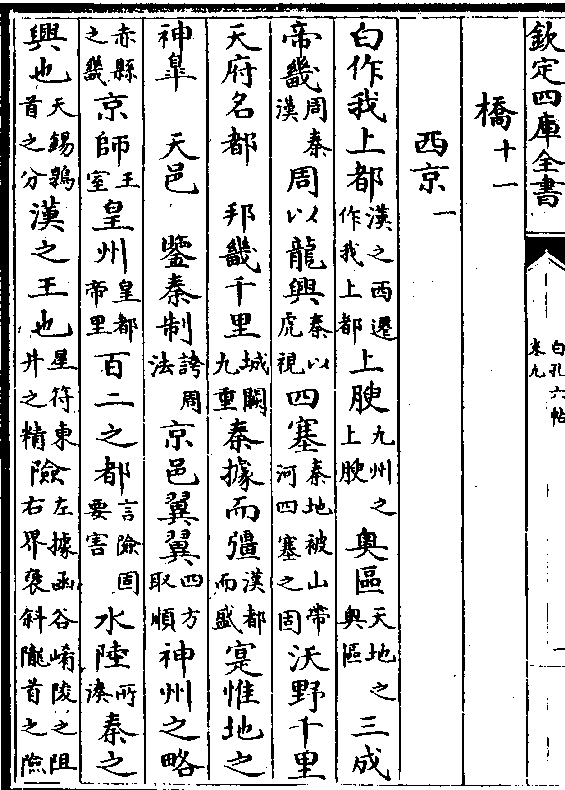 欽定四庫全書
白孔六帖
卷九
橋十一
西京一
白作我上都漢之西遷作我上都上腴九州之上腴奥區天地之奥區三成
帝畿周秦漢周以龍興秦以虎視四塞秦地被山帶河四塞之固沃野千里
天府名都 邦畿千里城闕九重秦據而彊漢都而盛寔惟地之
神臯 天邑 鑒秦制誇周法京邑翼翼四方取順神州之略
赤縣之畿京師王室皇州皇都帝里百二之都言險固要害水陸所湊秦之
興也天錫鶉首之分漢之王也星符東井之精險左據函谷崤陵之阻右界褒斜隴首之險